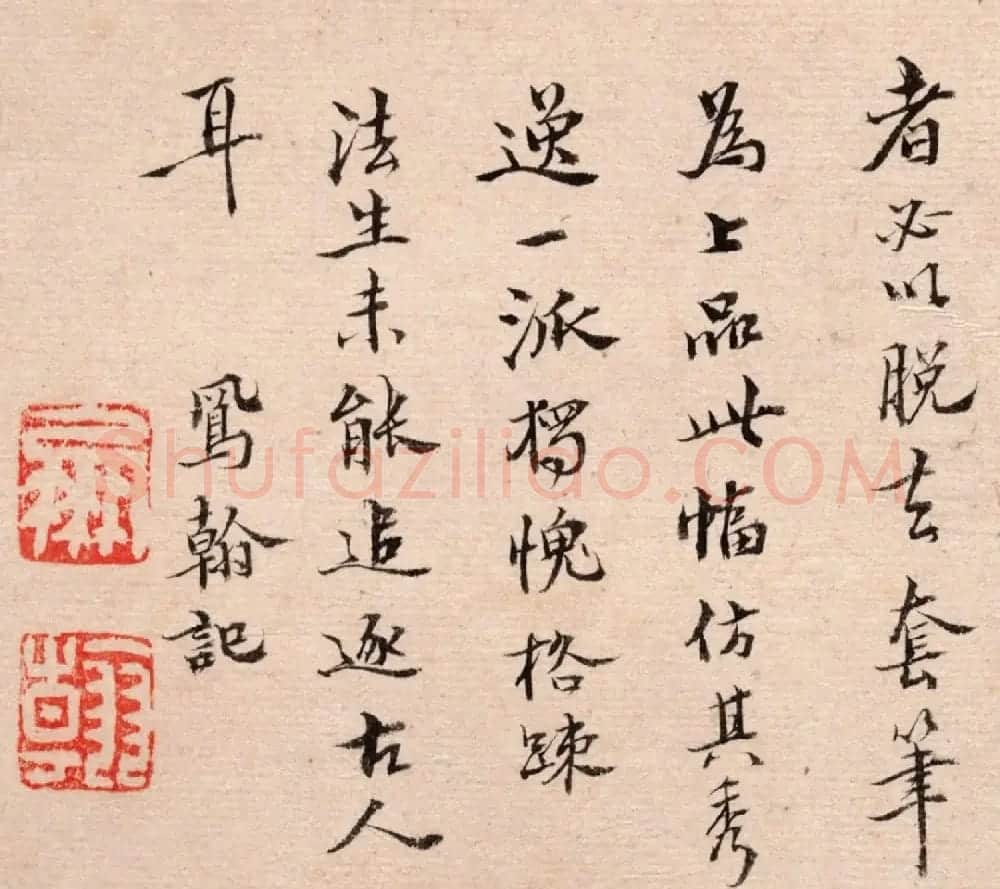 者必以脱去套筆
為上品此幅仿其秀
逸一派獨愧格踈
法生未能追逐古人
耳　鳳翰記
shufaziliao.COM